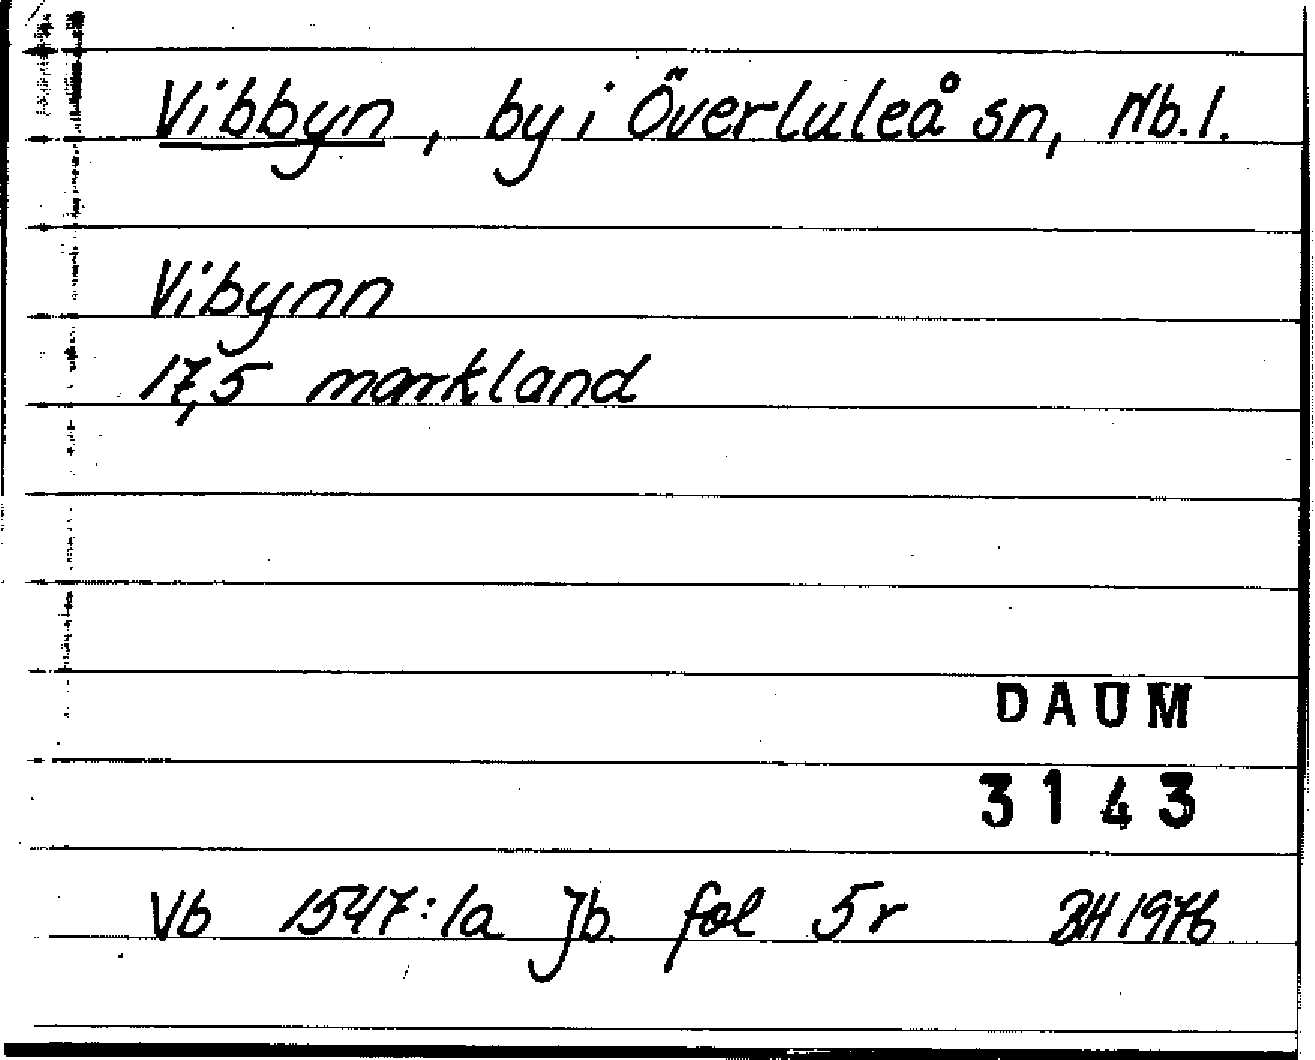 Vibbyn, by i Överluleå sn, Nb. l.
Vibynn
17,5 markland
DAUM
3143
Vb 1547:1a Jb fol 5 r BH 1976